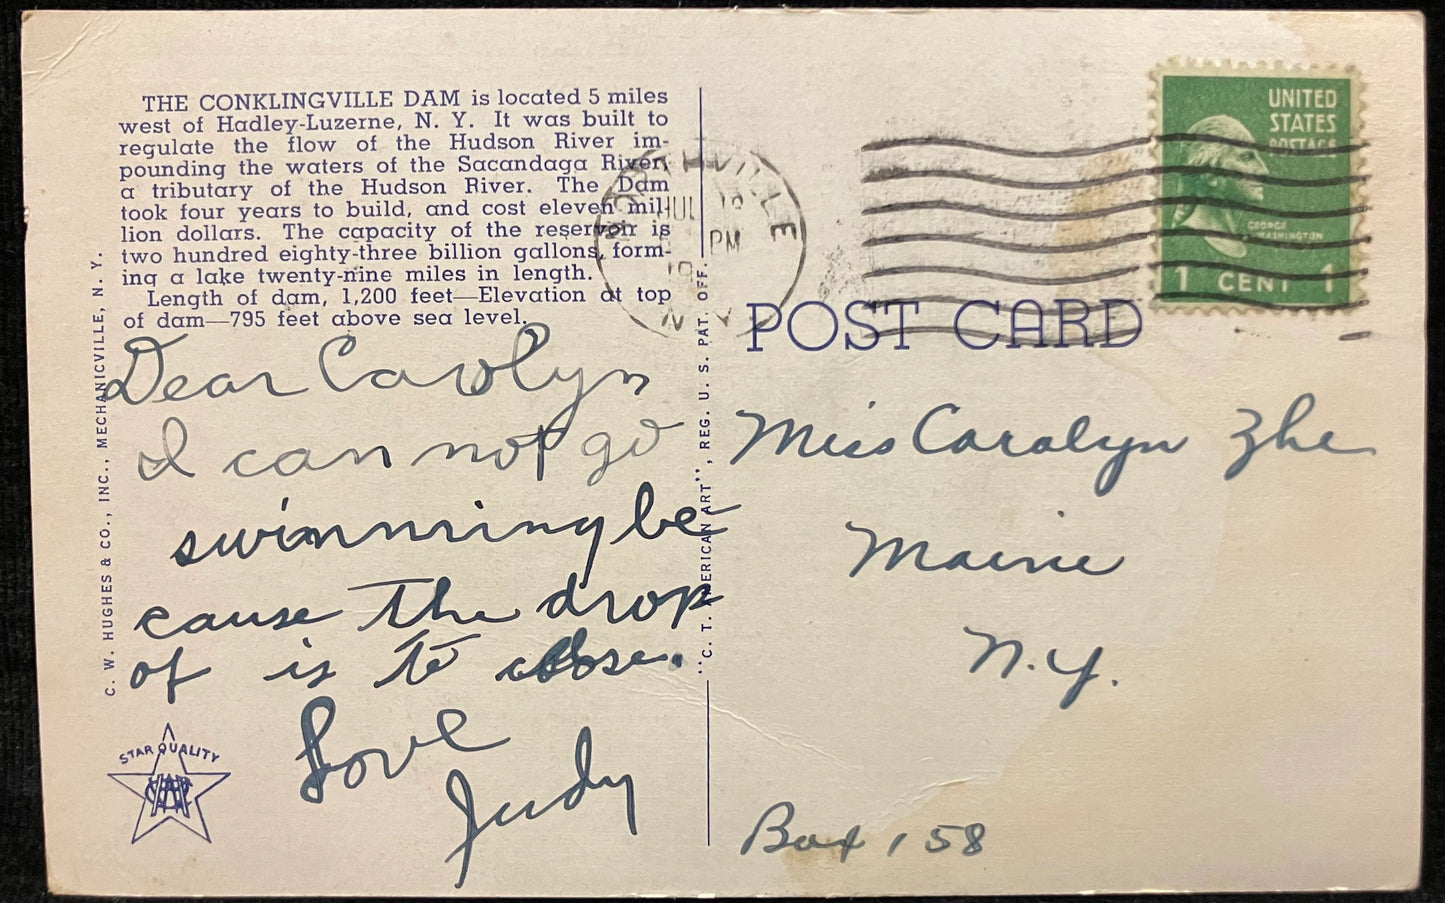 THE CONKLINGVILLE DAM is located 5 miles
west of Hadley-Luzerne, N. Y. It was built to
regulate the flow of the Hudson River im-
pounding the waters of the Sacandaga River,
a tributary of the Hudson River. The Dam
took four years to build, and cost eleven mil-
lion dollars. The capacity of the reservoir is
two hundred eighty-three billion gallons, form-
ing a lake twenty-nine miles in length.
Length of dam, 1,200 feet—Elevation at top
of dam—795 feet above sea level.
C. W. HUGHES & CO., INC., MECHANICVILLE, N. Y.
Dear Carolyn
I can not go
swimming be
cause the drop
of is to close.
Love
Judy
STAR QUALITY
"C. T. AMERICAN ART", REG. U. S. PAT. OFF.
NORTHVILLE
PM
N Y
UNITED
STATES
POSTAGE
GEORGE
WASHINGTON
1 CENT 1
POST CARD
Miss Carolyn Zhe
Maine
N.Y.
Box 158